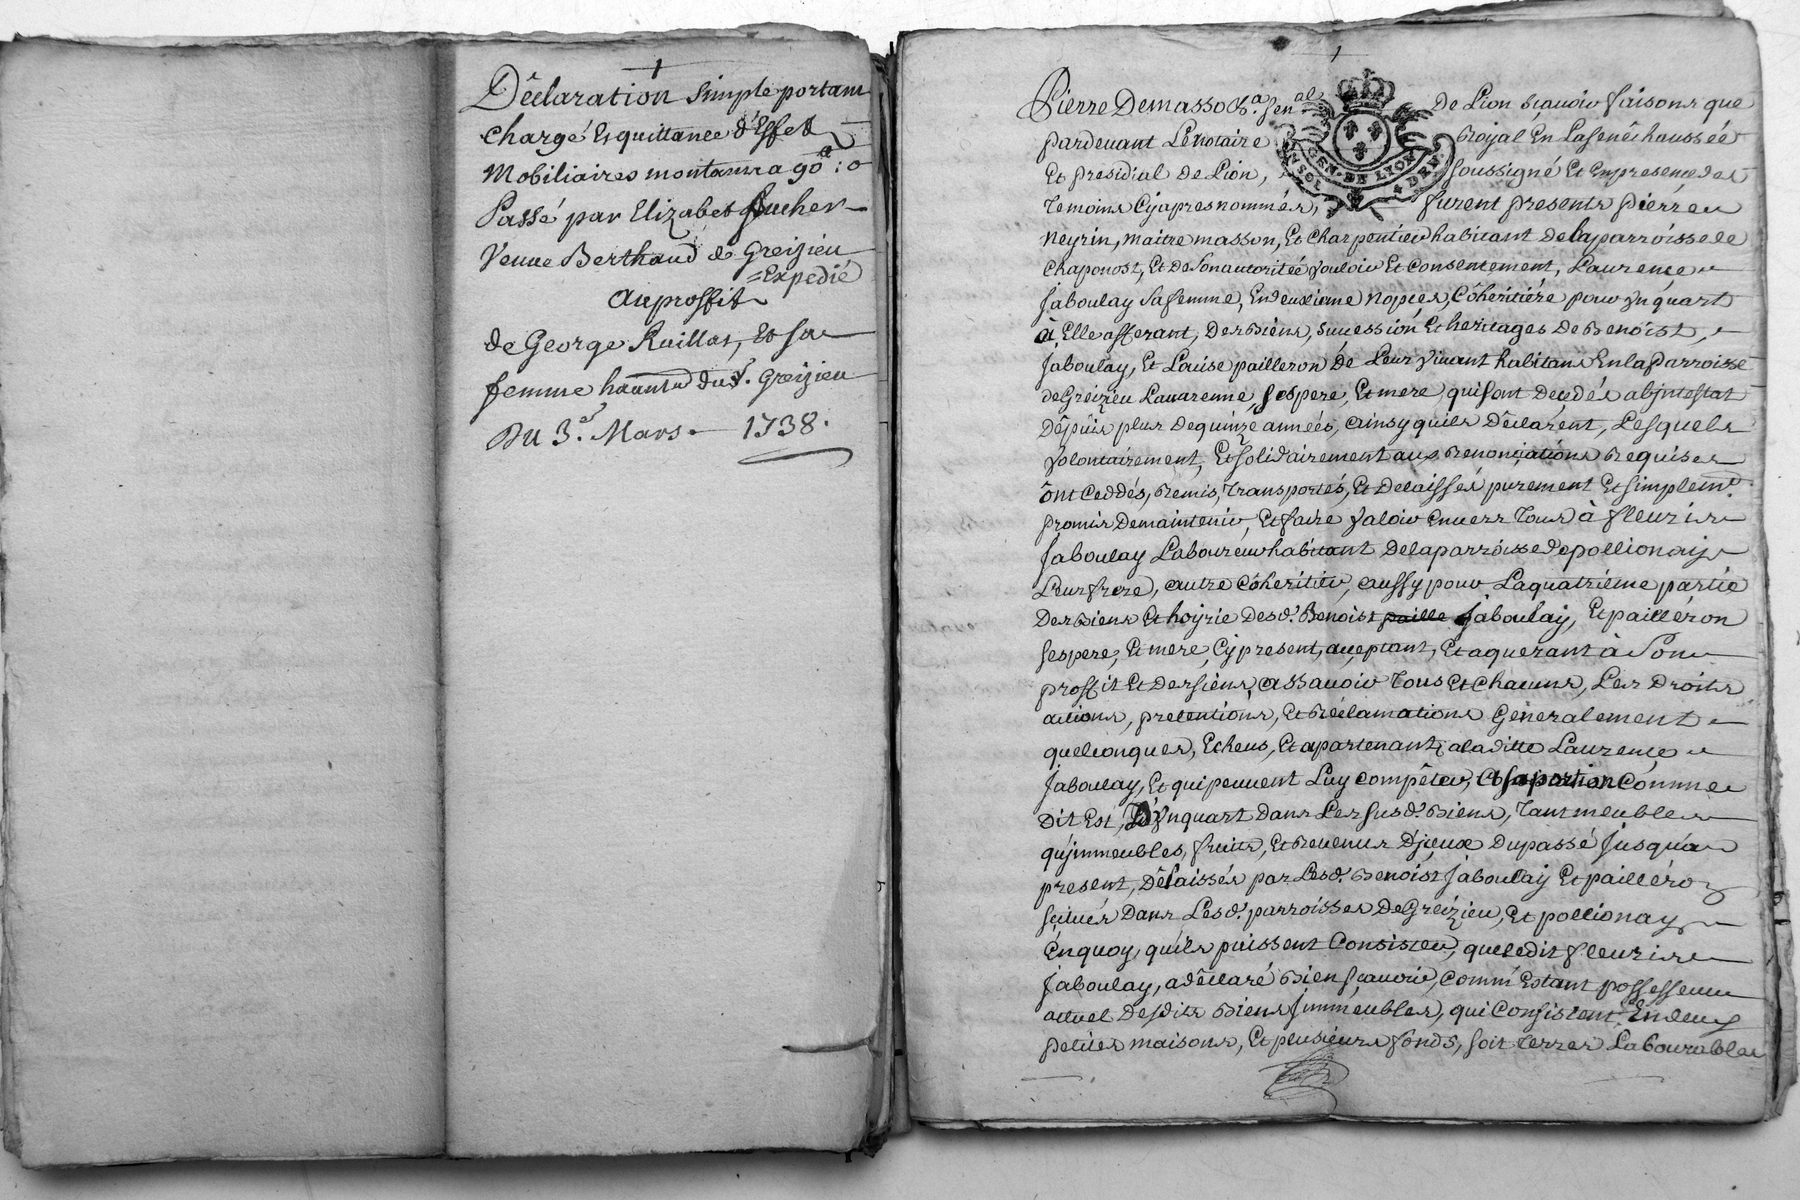 Déclaration simple portant
chargé Et quittance d'Effets
Mobiliaires montant a 90ᵗᵗ: 0
Passé par Elizabet
Veuve Berthaud de Greizieu
=Expedié
Au proffit
de George Ruillat, Et sa
femme du d. Greizieu
Du 3ᵉ. Mars 1738.
Pierre Demasso Sen.al de Lion sçavoir faisons que
pardevant Le notaire Royal En La senêchaussée
Et presidial de Lion, soussigné Et En presence des
GEN. DE LYON
temoins Cy apres nommés, furent presents Pierre
Neyrin, maitre masson, Et Charpentier habitant de la parroisse de
Chaponost, Et de son autoritéé vouloir Et Consentement, Laurence
Jaboulay Sa femme, En deuxieme nopces, Côheritiére pour Un quart
à Elle afferant, Des biens, succession Et heritages de Benoist,
Jaboulay, Et Louise pailleron de Leur vivant habitans En la Parroisse
de Greizieu Lavarenne, ses pere, Et mere, qui sont Decedés abjntestat
Dêpuis plus de quinze années, ainsy quils Dêclarent, Lesquels
volontairement, Et solidairement aux Renonciations Requises
ônt Ceddés, Remis, transportés, Et Delaissés purement Et simplem.t
promis De maintenir, Et faire valoir Envers tous à fleuris
Jaboulay Laboureur habitant de la parroisse de pollionais
Leur frere, autre Côheritier, aussy pour La quatriéme partie
Des biens Et hoyrie Desd. Benoist paille Jaboulay, Et pailléron
ses pere, Et mere, Cy present, acceptant, Et aquerant à Son
proffit Et Des siens, assavoir tous Et Chacuns, Les Droits
actions, pretentions, Et Réclamations Généralement
quelconques, Echeus, Et apartenants a laditte Laurence
Jaboulay, Et qui peuvent Luy compêter, Et sa portion Comme
Dit Est, D'Un quart dans Les susd. Biens, tant meubles
qu'jmmeubles, fruits, Et Revenus D'jceux Du passé Jusqu'a
present, Dêlaissés par Lesd. Benoist Jaboulay Et pailléron
scitués Dans Lesd. parroisses De Greizieu, Et pollionay
En quoy, qu'ils puissent Consister, que ledit fleuris
Jaboulay, a dêclaré bien sçavoir, Comm'Estant possesseur
actuel Desdits Biens Jmmeubles, qui Consistent En deux
petites maisons, Et plusieurs fonds, soit terres Labourables